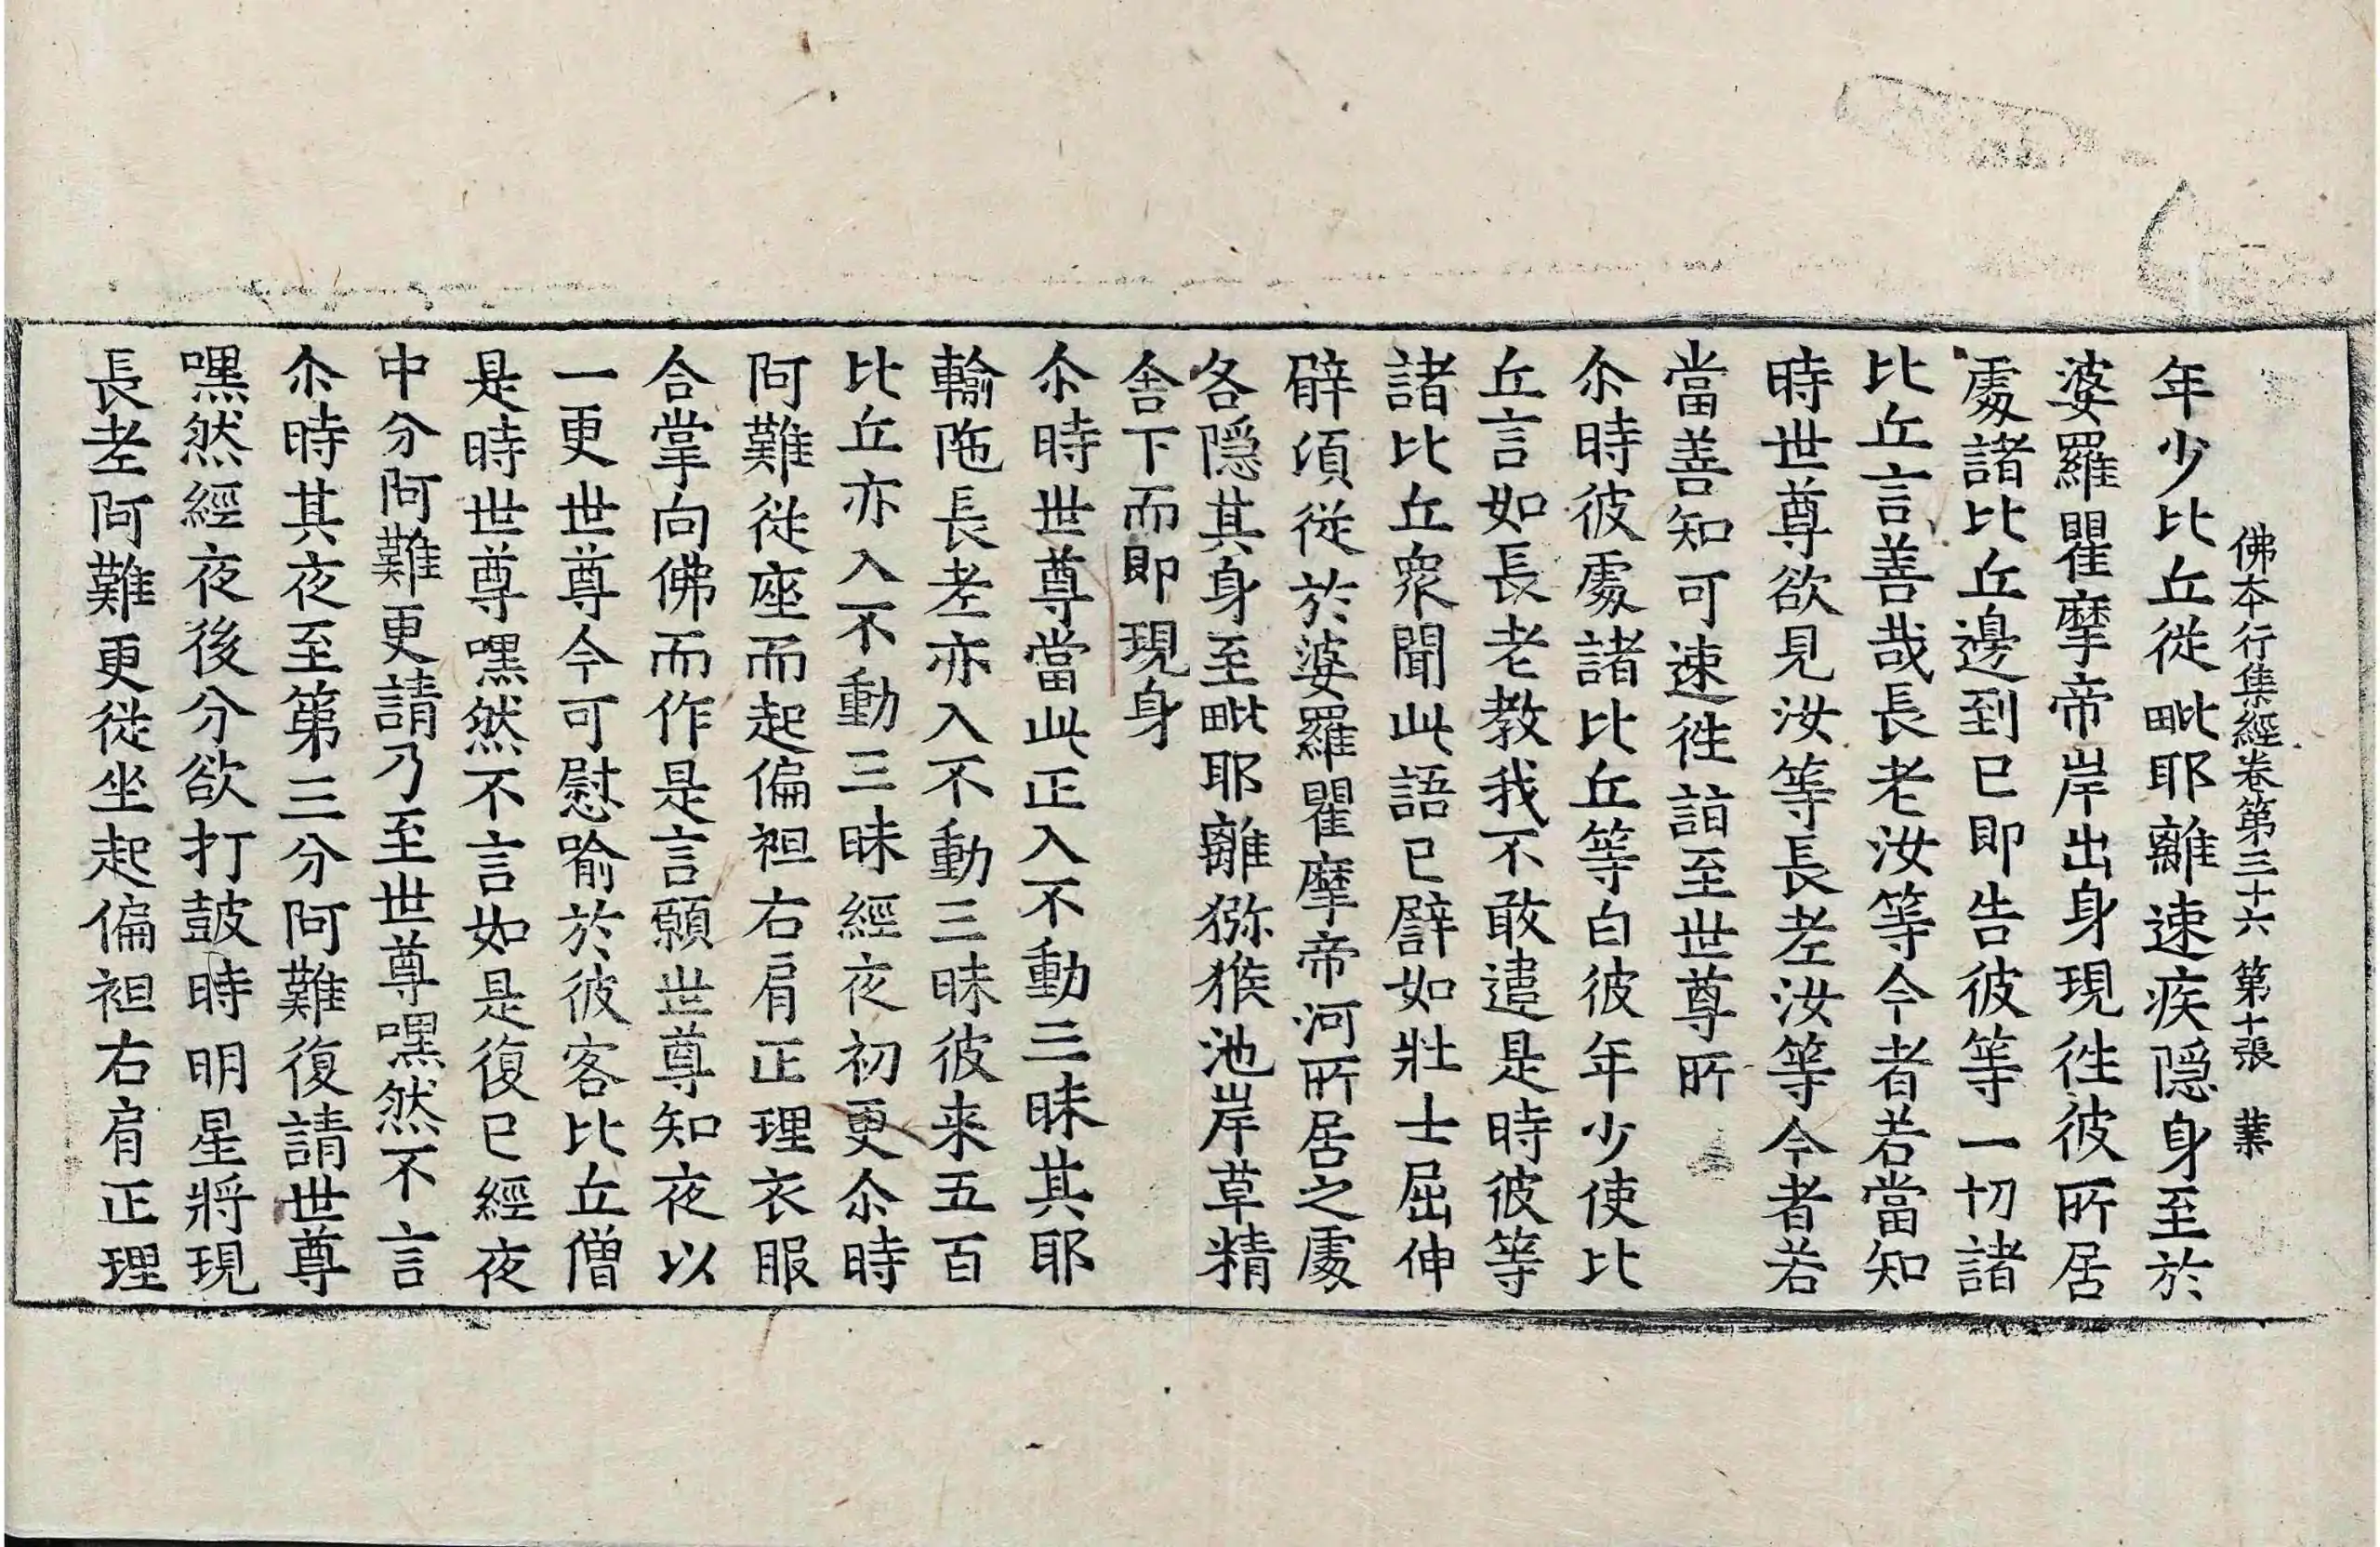 佛本行集經卷第三十六 第十張 葉
年少比丘従毗耶離速疾隱身至於
婆羅瞿摩帝岸出身現徃彼所居
處諸比丘邊到已即告彼等一切諸
比丘言善哉長老汝等今者若當知
時世尊欲見汝等長老汝等今者若
當善知可速徃詣至世尊所
尒時彼處諸比丘等白彼年少使比
丘言如長老教我不敢違是時彼等
諸比丘衆聞此語已譬如壯士屈伸
臂湏従於婆羅瞿摩帝河所居之處
各隱其身至毗耶離猕猴池岸草精
舍下而即現身
尒時世尊當此正入不動三昧其耶
輸陁長老亦入不動三昧彼来五百
比丘亦入不動三昧經夜初更尒時
阿難従座而起偏袒右肩正理衣服
合掌向佛而作是言願世尊知夜以
一更世尊今可慰喻於彼客比丘僧
是時世尊嘿然不言如是復已經夜
中分阿難更請乃至世尊嘿然不言
尒時其夜至第三分阿難復請世尊
嘿然經夜後分欲打鼓時明星將現
長老阿難更従坐起偏袒右肩正理